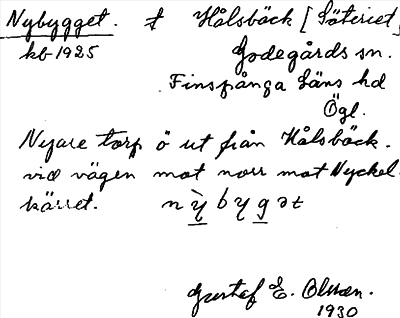 Nybygget. t Hålsbäck [Säteriet]
kb 1925 Godegårds sn.
Finspånga Läns hd
Ögl.
Nyare torp ö ut från Hålsbäck.
vid vägen mot norr mot Nyckel-
kärret. n ỳ̖ b y g ə t
Gustaf E. Olsson.
1930